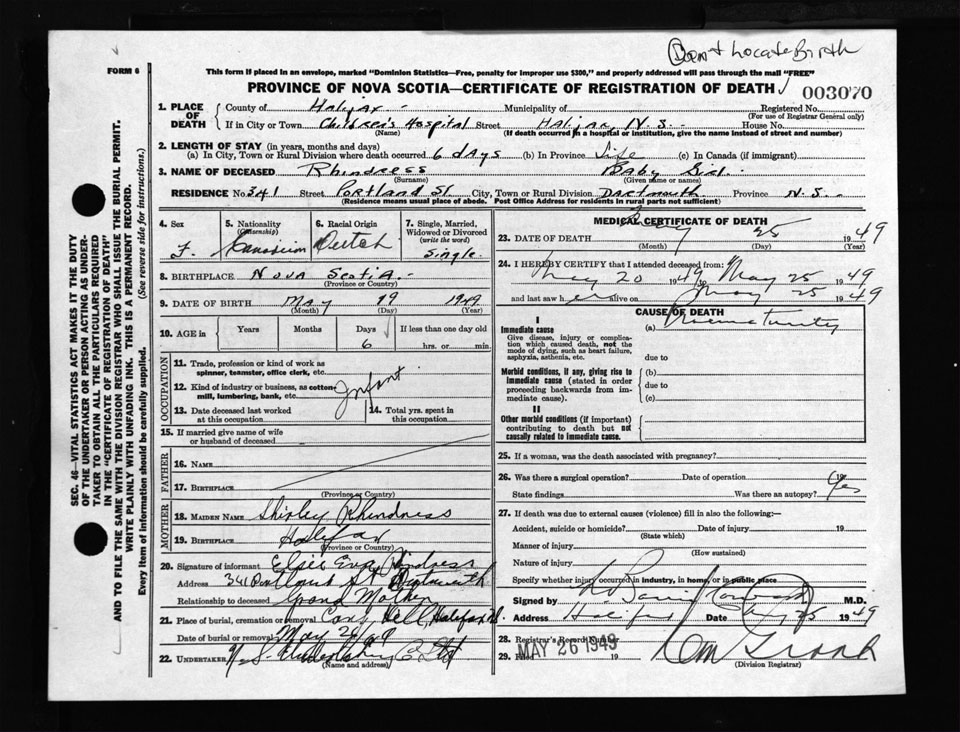 Can't Locate Birth
FORM 6
This form if placed in an envelope, marked "Dominion Statistics—Free, penalty for improper use $300," and properly addressed will pass through the mail "FREE"
PROVINCE OF NOVA SCOTIA—CERTIFICATE OF REGISTRATION OF DEATH
003070
1. PLACE OF DEATH
County of Halifax Municipality of Registered No.
(For use of Registrar General only)
If in City or Town Children's Hospital Street Halifax, N.S. House No.
(Name) (If death occurred in a hospital or institution, give the name instead of street and number)
2. LENGTH OF STAY (in years, months and days)
(a) In City, Town or Rural Division where death occurred 6 days (b) In Province Life (c) In Canada (if immigrant)
3. NAME OF DECEASED Rhindress Baby Girl
(Surname) (Given name or names)
RESIDENCE No 341 Street Portland St. City, Town or Rural Division Dartmouth Province N.S.
(Residence means usual place of abode. Post Office Address for residents in rural parts not sufficient)
4. Sex
F.
5. Nationality
(Citizenship)
Canadian
6. Racial Origin
Dutch
7. Single, Married, Widowed or Divorced
(write the word)
Single
8. BIRTHPLACE Nova Scotia
(Province or Country)
9. DATE OF BIRTH May 19 1949
(Month) (Day) (Year)
10. AGE in Years Months Days If less than one day old
6 hrs. or min.
OCCUPATION
11. Trade, profession or kind of work as spinner, teamster, office clerk, etc.
12. Kind of industry or business, as cotton-mill, lumbering, bank, etc.
Infant
13. Date deceased last worked at this occupation
14. Total yrs. spent in this occupation
15. If married give name of wife or husband of deceased
FATHER
16. NAME
17. BIRTHPLACE
(Province or Country)
MOTHER
18. MAIDEN NAME Shirley Rhindress
19. BIRTHPLACE Halifax
(Province or Country)
20. Signature of informant Elsie Eva Rhindress
Address 341 Portland St Dartmouth
Relationship to deceased Grand Mother
21. Place of burial, cremation or removal Hill, Halifax
Date of burial or removal May 26
22. UNDERTAKER
(Name and address)
MEDICAL CERTIFICATE OF DEATH
23. DATE OF DEATH May 25 1949
(Month) (Day) (Year)
24. I HEREBY CERTIFY that I attended deceased from:
May 20 1949 to May 25 1949
and last saw her alive on May 25 1949
CAUSE OF DEATH
I
Immediate cause
Give disease, injury or complication which caused death, not the mode of dying, such as heart failure, asphyxia, asthenia, etc.
(a) Prematurity
due to
Morbid conditions, if any, giving rise to immediate cause (stated in order proceeding backwards from immediate cause).
(b)
due to
(c)
II
Other morbid conditions (if important) contributing to death but not causally related to immediate cause.
25. If a woman, was the death associated with pregnancy?
26. Was there a surgical operation? Date of operation
State findings Was there an autopsy? Yes
27. If death was due to external causes (violence) fill in also the following:—
Accident, suicide or homicide? Date of injury 19
(State which)
Manner of injury
(How sustained)
Nature of injury
Specify whether injury occurred in industry, in home, or in public place
Signed by M.D.
Address Halifax Date May 25 1949
28. Registrar's Record Number
29. Filed 19
MAY 26 1949
(Division Registrar)
SEC. 46—VITAL STATISTICS ACT MAKES IT THE DUTY
OF THE UNDERTAKER OR PERSON ACTING AS UNDER-
TAKER TO OBTAIN ALL THE PARTICULARS REQUIRED
IN THE "CERTIFICATE OF REGISTRATION OF DEATH"
AND TO FILE THE SAME WITH THE DIVISION REGISTRAR WHO SHALL ISSUE THE BURIAL PERMIT.
WRITE PLAINLY WITH UNFADING INK. THIS IS A PERMANENT RECORD.
Every item of information should be carefully supplied. (See reverse side for instructions.)